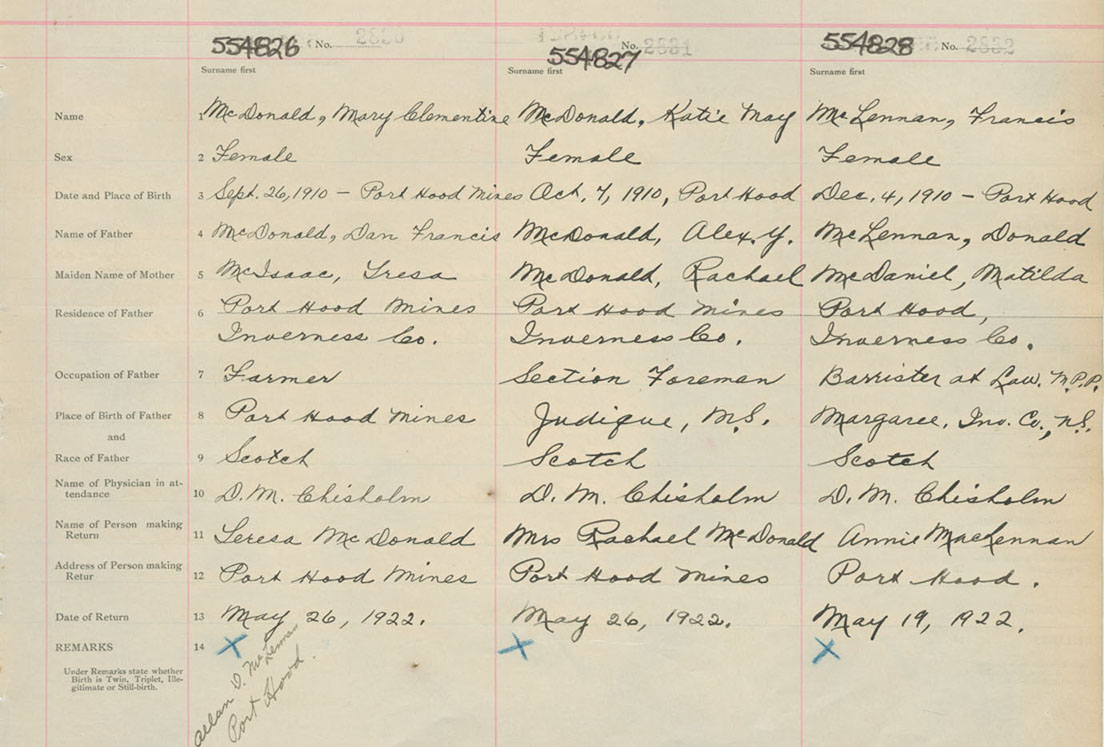 554826 No. 2830 554827 No. 2831 554828 No. 2832
Surname first Surname first Surname first
Name 1 McDonald, Mary Clementine McDonald, Katie May McLennan, Francis
Sex 2 Female Female Female
Date and Place of Birth 3 Sept. 26, 1910 - Port Hood Mines Oct. 7, 1910, Port Hood Dec. 4, 1910 - Port Hood
Name of Father 4 McDonald, Dan Francis McDonald, Alex. Y. McLennan, Donald
Maiden Name of Mother 5 McIsaac, Tresa McDonald, Rachael McDaniel, Matilda
Residence of Father 6 Port Hood Mines Port Hood Mines Port Hood,
Inverness Co. Inverness Co. Inverness Co.
Occupation of Father 7 Farmer Section Foreman Barrister at Law. M.P.P.
Place of Birth of Father 8 Port Hood Mines Judique, N.S. Margaree, Inv. Co., N.S.
and
Race of Father 9 Scotch Scotch Scotch
Name of Physician in at-
tendance 10 D. M. Chisholm D. M. Chisholm D. M. Chisholm
Name of Person making
Return 11 Teresa McDonald Mrs Rachael McDonald Annie MacLennan
Address of Person making
Retur 12 Port Hood Mines Port Hood Mines Port Hood.
Date of Return 13 May 26, 1922. May 26, 1922. May 19, 1922.
REMARKS 14 X X X
Under Remarks state whether
Birth is Twin, Triplet, Ille-
gitimate or Still-birth.
Allan D. McLennan
Port Hood.